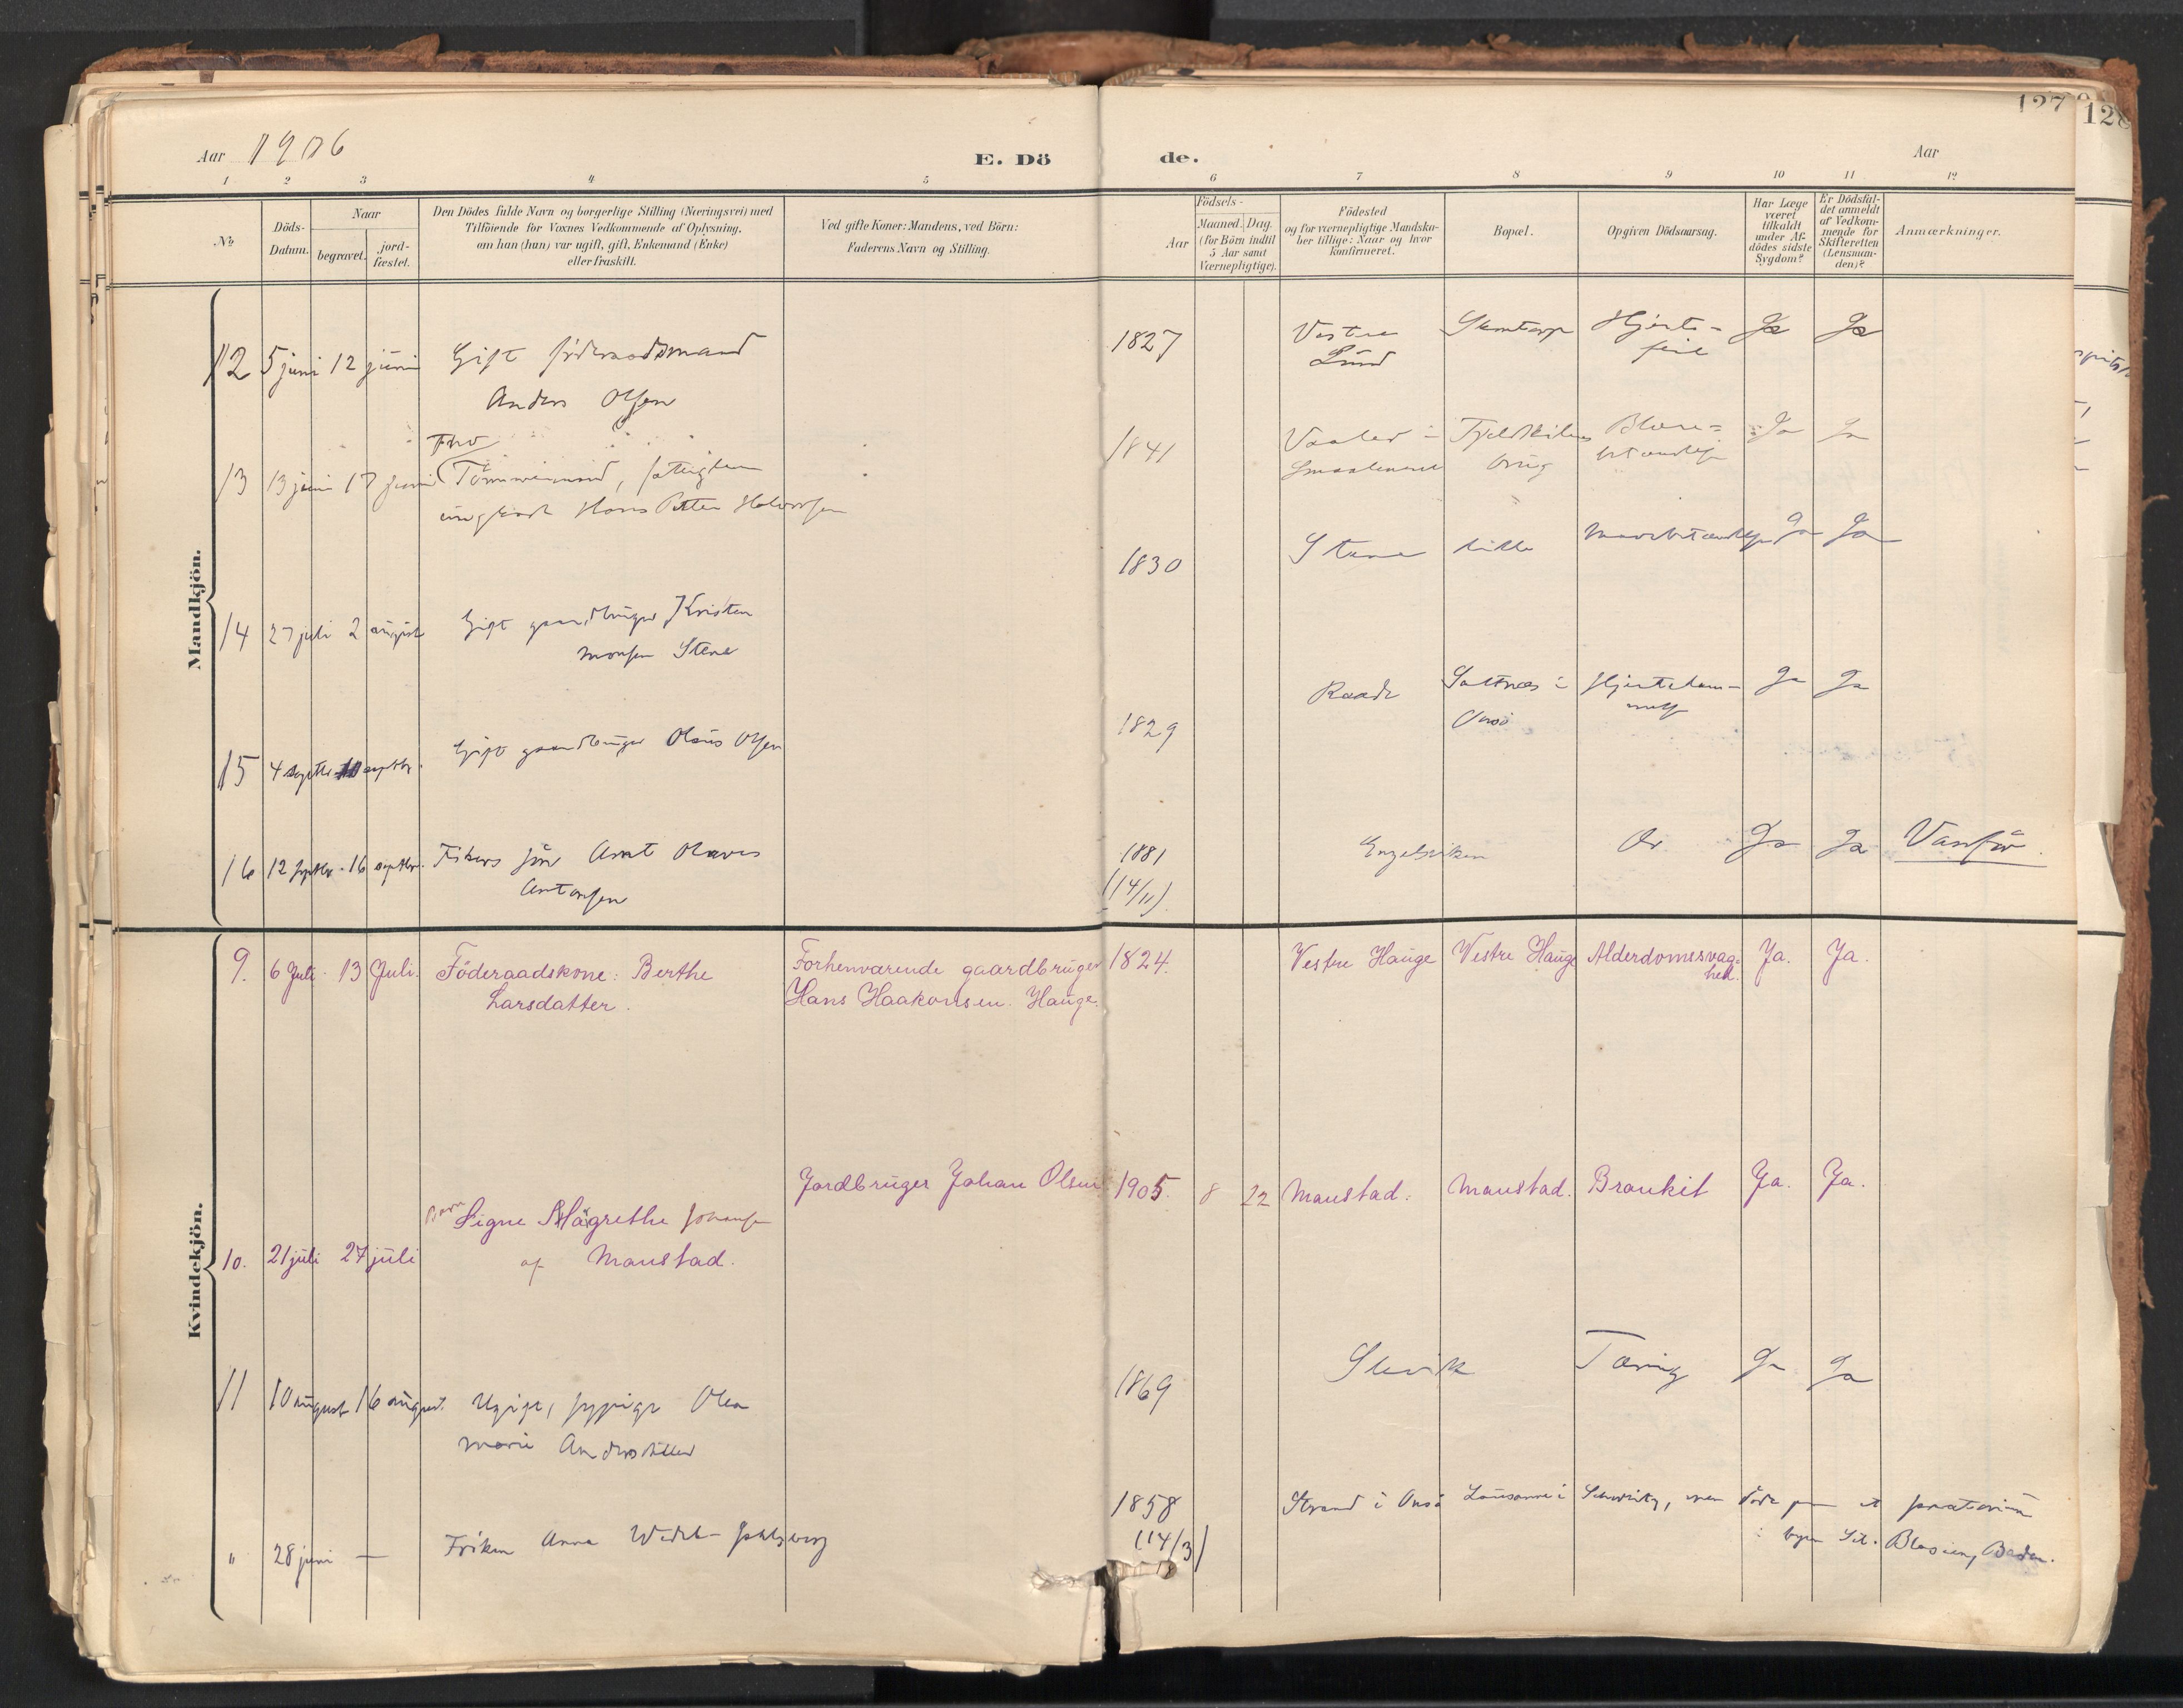 127
128
Aar 1906
E. Dö
de.
Aar
1 2 3 4 5 6 7 8 9 10 11 12
No
Döds-
Datum.
Naar
begravet.
jord-
fæstet.
Den Dödes fulde Navn og borgerlige Stilling (Næringsvei) med
Tilföiende for Voxnes Vedkommende af Oplysning.
om han (hun) var ugift, gift, Enkemand (Enke)
eller fraskilt.
Ved gifte Koner: Mandens, ved Börn:
Faderens Navn og Stilling.
Födsels-
Aar
Maaned.
Dag.
(for Börn indtil
5 Aar samt
Værnepligtige).
Födested
og for værnepligtige Mandska-
ber tillige: Naar og hvor
konfirmeret.
Bopæl.
Opgiven Dödsaarsag.
Har Læge
været
tilkaldt
under Af-
dödes sidste
Sygdom?
Er Dödsfal-
det anmeldt
af Vedkom-
mende for
Skifteretten
(Lensman-
den)?
Anmærkninger.
Mandkjön.
12 5 juni 12 juni Gift föderaadsmand
Anders Olsen
1827 Vestre
Lund
Hjerte-
feil
Ja Ja
13 13 juni 17 juni
Hans Petter Halvorsen
1841 Vaaler i
Smaalenene
Blære-
betændelse
Ja Ja
14 27 juli 2 august Gift gaardbruger Kristen
Monsen Stene
1830 Stene lille Ja Ja
15 4 septbr 10 septbr. Gift gaardbruger Olaus Olsen
1829 Raade Saltnes i
Onsö
Hjertelam-
melse
Ja Ja
16 12 septbr. 16 septbr. Fiskers sön Arnt Olaves
Antonsen
1881
(14/11)
Engelsviken Ja Ja Vanför.
Kvindekjön.
9. 6 Juli. 13 Juli. Föderaadskone: Berthe
Larsdatter.
Forhenværende gaardbruger
Hans Haakonsen. Hauge.
1824. Vestre Hauge Vestre Hauge Alderdomssvag-
hed.
Ja. Ja.
10. 21 juli 27 juli Barn Signe Magrethe Johansen
af Maustad.
Jordbruger Johan Olsen
1905. 8 22 Maustad. Maustad. Bronkit Ja. Ja.
11 10 august 16 august. Ugift, sypige Olea
Marie Andersdatter
1869 Slevik Tæring Ja Ja
" 28 juni — Fröken Anna Wedel-Jarlsberg
1858
(14/3)
Strand i Onsö Lausanne i Schweitz, men döde paa et sanatorium
i byen St. Blasien, Baden.